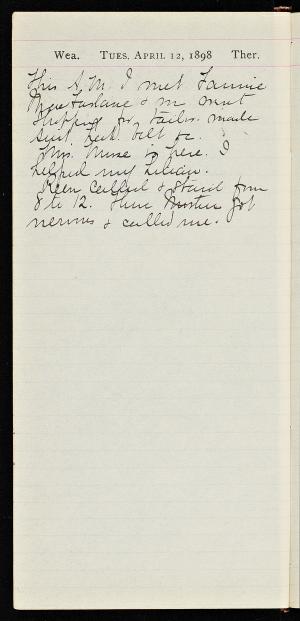 Wea. TUES. APRIL 12, 1898 Ther.
This A.M. I met Fannie
MacFarlane & we went
shopping for tailor made
suit, belt &c.
Mrs. Muse is here. I
helped my Lilian.
Keen called & stayed from
8 to 12. Then got
nervous & called me.